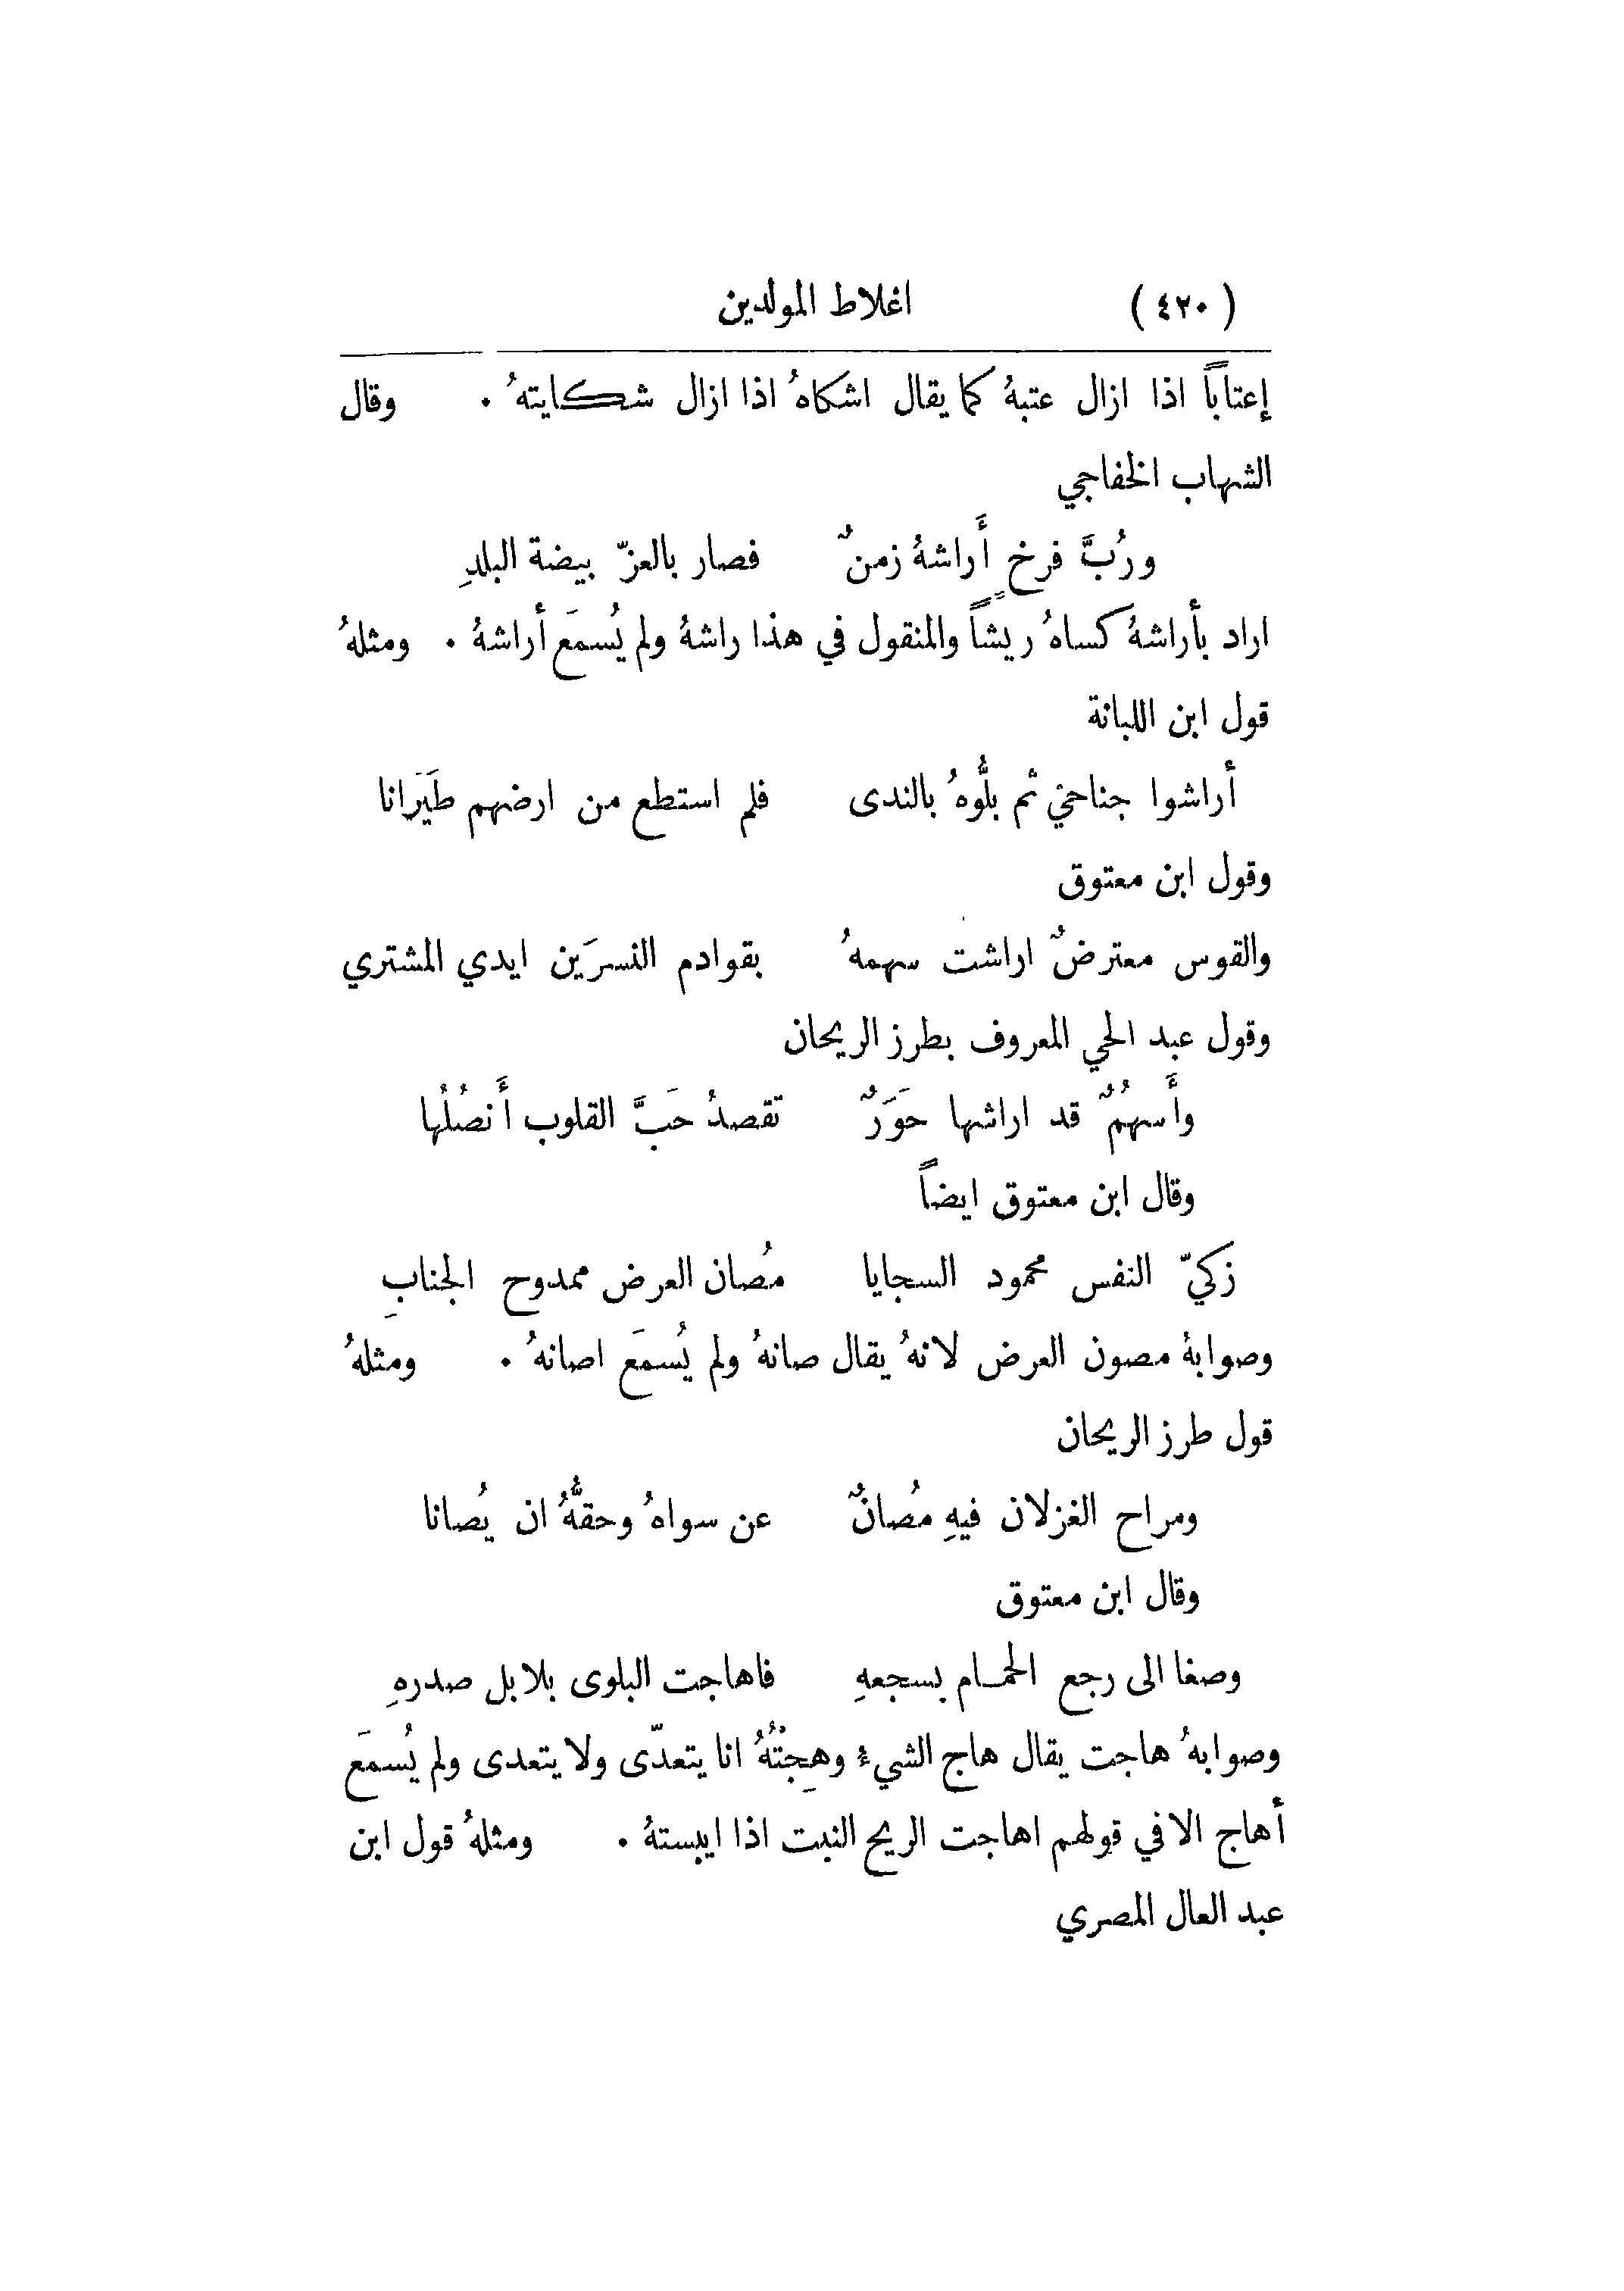 ( ٤٢٠ ) اغلاط المولدين
إعتاباً اذا ازال عتبهُ كما يقال اشكاهُ اذا ازال شكايتهُ . وقال
الشهاب الخفاجي
ورُبَّ فرخٍ أَراشهُ زمنٌ فصار بالعزّ بيضة البلدِ
اراد بأراشهُ كساهُ ريشاً والمنقول في هذا راشهُ ولم يُسمَع أراشهُ . ومثلهُ
قول ابن اللبانة
أراشوا جناحيْ ثم بلُّوهُ بالندى فلم استطع من ارضهم طَيَرانا
وقول ابن معتوق
والقوس معترضٌ اراشت سهمهُ بقوادم النسرَين ايدي المشتري
وقول عبد الحي المعروف بطرز الريحان
وأَسهُمٌ قد اراشها حَوَرٌ تقصدُ حَبَّ القلوب أَنصُلُها
وقال ابن معتوق ايضاً
زكيّ النفس محمود السجايا مُصان العرض ممدوح الجنابِ
وصوابهُ مصون العرض لانهُ يقال صانهُ ولم يُسمَع اصانهُ . ومثلهُ
قول طرز الريحان
ومراح الغزلان فيهِ مُصانٌ عن سواهُ وحقهُّ ان يُصانا
وقال ابن معتوق
وصغا الى رجع الحمام بسجعهِ فاهاجت البلوى بلابل صدرهِ
وصوابهُ هاجت يقال هاج الشيءُ وهِجْتُهُ انا يتعدّى ولا يتعدى ولم يُسمَع
أهاج الا في قولهم اهاجت الريح النبت اذا ايبستهُ . ومثلهُ قول ابن
عبد العال المصري